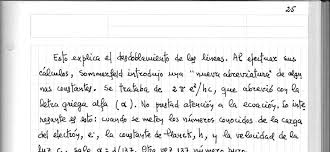 26
Esto explica el desdoblamiento de las líneas. Al efectuar sus
cálculos, Sommerfeld introdujo una "nueva abreviatura" de algu
nas constantes. Se trataba de 2π e²/hc, que abrevió con la
letra griega alfa (α). No prestad atención a la ecuación. Lo inte
resante es esto: cuando se meten los números conocidos de la carga
del electrón, e⁻, la constante de Planck, h, y la velocidad de la
luz c, sale α = 1/137. Otra vez 137 número puro.